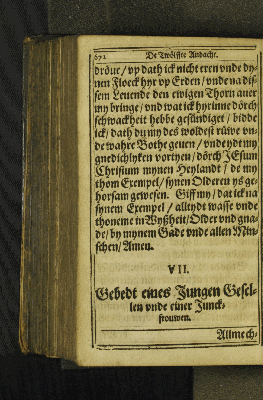 672 De Twölffte Andacht.
dröue / vp dath ick nicht eren vnde dy-
nen Floeck hyr vp Erden / vnde na dis-
sem Leuende den ewigen Thorn auer
my bringe / vnd wat ick hyrinne dörch
schwackheit hebbe gesündiget / bidde
ick / dath du my des woldest rüwe vn-
de wahre Bothe geuen / vnde ydt my
gnedichlyken vorthyen / dörch JEsum
Christum mynen Heylandt / de my
thom Exempel / synen Olderen ys ge-
horsam gewesen. Giff my / dat ick na
synem Exempel / alltydt wasse vnde
thoneme in Wyßheit / Older vnd gna-
de / by mynem Gade vnde allen Min-
schen / Amen.
VII.
Gebedt eines Jungen Gesel-
len vnde einer Junck-
frouwen.
Allmech-